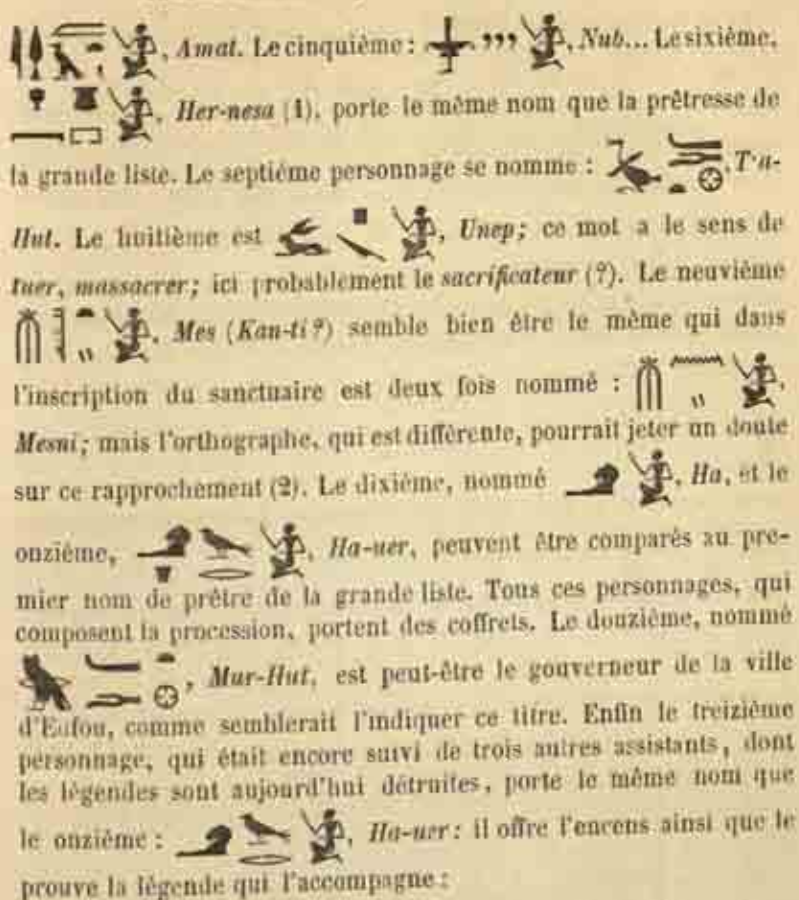 , Amat. Le cinquième : , Nub... Le sixième,
, Her-nesa (1), porte le même nom que la prêtresse de
la grande liste. Le septième personnage se nomme : , T'a-
Hut. Le huitième est , Unep; ce mot a le sens de
tuer, massacrer; ici probablement le sacrificateur (?). Le neuvième
, Mes (Kan-ti?) semble bien être le même qui dans
l'inscription du sanctuaire est deux fois nommé : ,
Mesni; mais l'orthographe, qui est différente, pourrait jeter un doute
sur ce rapprochement (2). Le dixième, nommé , Ha, et le
onzième, , Ha-uer, peuvent être comparés au pre-
mier nom de prêtre de la grande liste. Tous ces personnages, qui
composent la procession, portent des coffrets. Le douzième, nommé
, Mur-Hut, est peut-être le gouverneur de la ville
d'Edfou, comme semblerait l'indiquer ce titre. Enfin le treizième
personnage, qui était encore suivi de trois autres assistants, dont
les légendes sont aujourd'hui détruites, porte le même nom que
le onzième : , Ha-uer : il offre l'encens ainsi que le
prouve la légende qui l'accompagne :